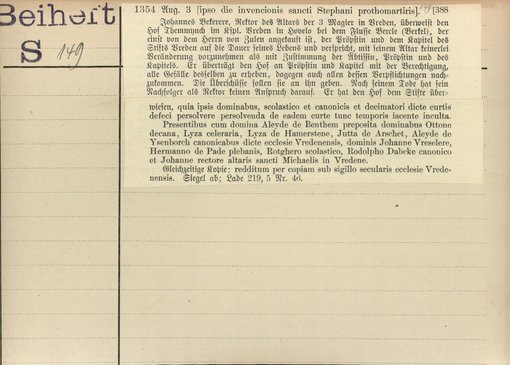 Beiheft
S 149
1354 Aug. 3 [ipso die invencionis sancti Stephani prothomartiris]. [388
Johannes Bekerer, Rektor des Altars der 3 Magier in Vreden, überweist den
Hof Themmynch im Kspl. Vreden in Hovelo bei dem Flusse Berele (Berkel), der
einst von dem Herrn von Zulen angekauft ist, der Pröpstin und dem Kapitel des
Stifts Vreden auf die Dauer seines Lebens und verspricht, mit seinem Altar keinerlei
Veränderung vorzunehmen als mit Zustimmung der Äbtissin, Pröpstin und des
Kapitels. Er überträgt den Hof an Pröpstin und Kapitel mit der Berechtigung,
alle Gefälle desselben zu erheben, dagegen auch allen dessen Verpflichtungen nach-
zukommen. Die Überschüsse sollen sie an ihn geben. Nach seinem Tode hat sein
Nachfolger als Rektor keinen Anspruch darauf. Er hat den Hof dem Stifte über-
wiesen, quia ipsis dominabus, scolastico et canonicis et decimatori dicte curtis
defeci persolvere persolvenda de eadem curte tunc temporis iacente inculta.
Presentibus cum domina Aleyde de Benthem preposita dominabus Ottone
decana, Lyza celeraria, Lyza de Hamerstene, Jutta de Arschet, Aleyde de
Ysenborch canonicabus dicte ecclesie Vredenensis, dominis Johanne Vreselere,
Hermanno de Pade plebanis, Rotghero scolastico, Rodolpho Dabeke canonico
et Johanne rectore altaris sancti Michaelis in Vredene.
Gleichzeitige Kopie: redditum per copiam sub sigillo secularis ecclesie Vrede-
nensis. Siegel ab; Lade 219, 5 Nr. 4d.